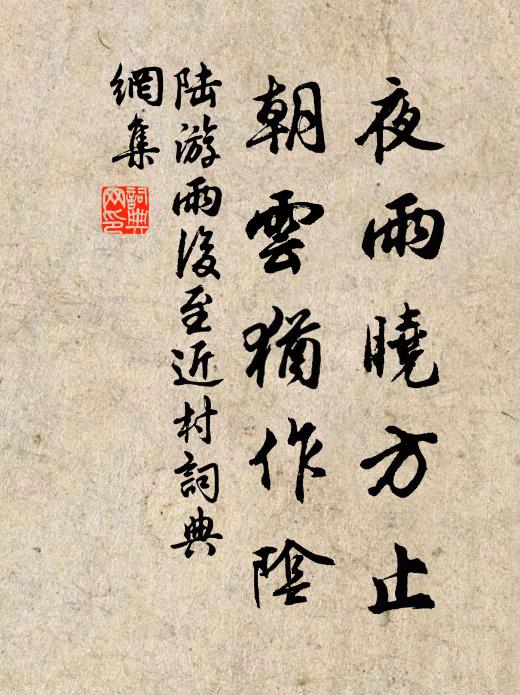 夜雨曉方止
朝雲猶作陰
陸游雨後至近村詞典
網集
詞典網印